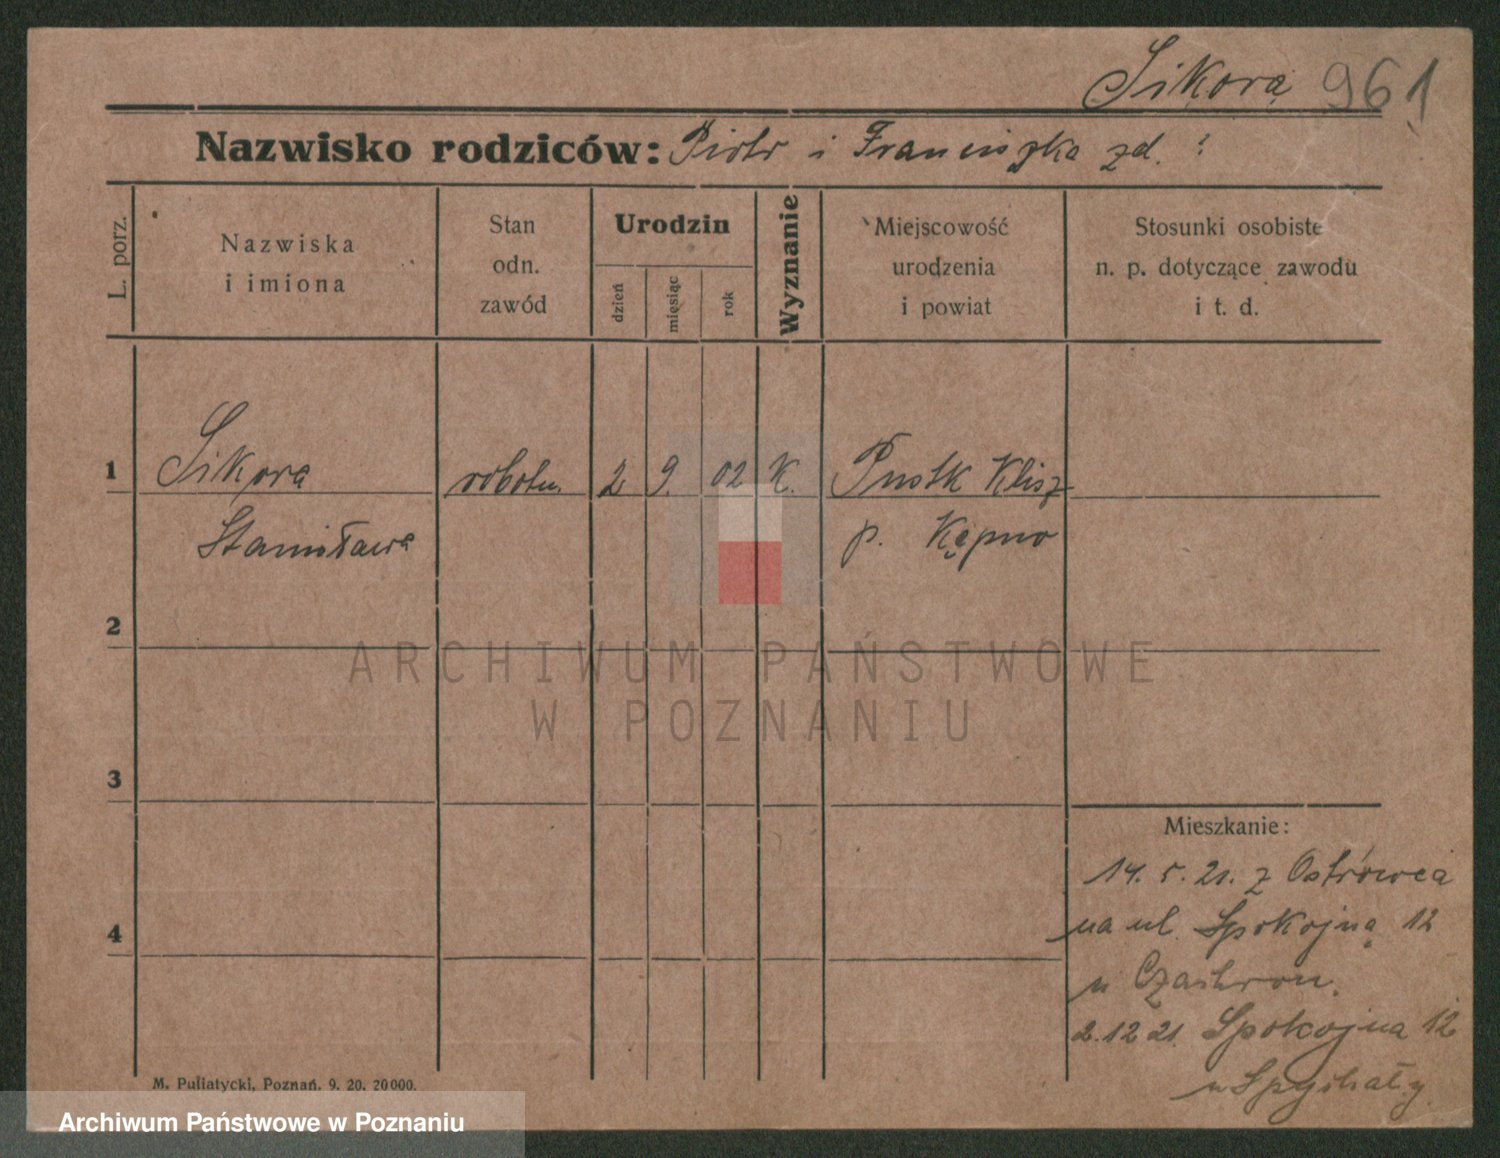 Sikora 961
Nazwisko rodziców: Piotr i Franciszka zd. ?
L. porz.
Nazwiska
i imiona
Stan
odn.
zawód
Urodzin
dzień
miesiąc
rok
Wyznanie
Miejscowość
urodzenia
i powiat
Stosunki osobiste
n. p. dotyczące zawodu
i t. d.
1 Sikora robotn. 2 9. 02 K. Pustk Klisz
Stanisława p. Kępno
2
ARCHIWUM PAŃSTWOWE
W POZNANIU
3
Mieszkanie:
14. 5. 21. z Ostrówca
na ul. Spokojną 12
4
u
2.12 21. Spokojna 12
u Spychały
M. Puliatycki, Poznań. 9. 20. 20000.
Archiwum Państwowe w Poznaniu